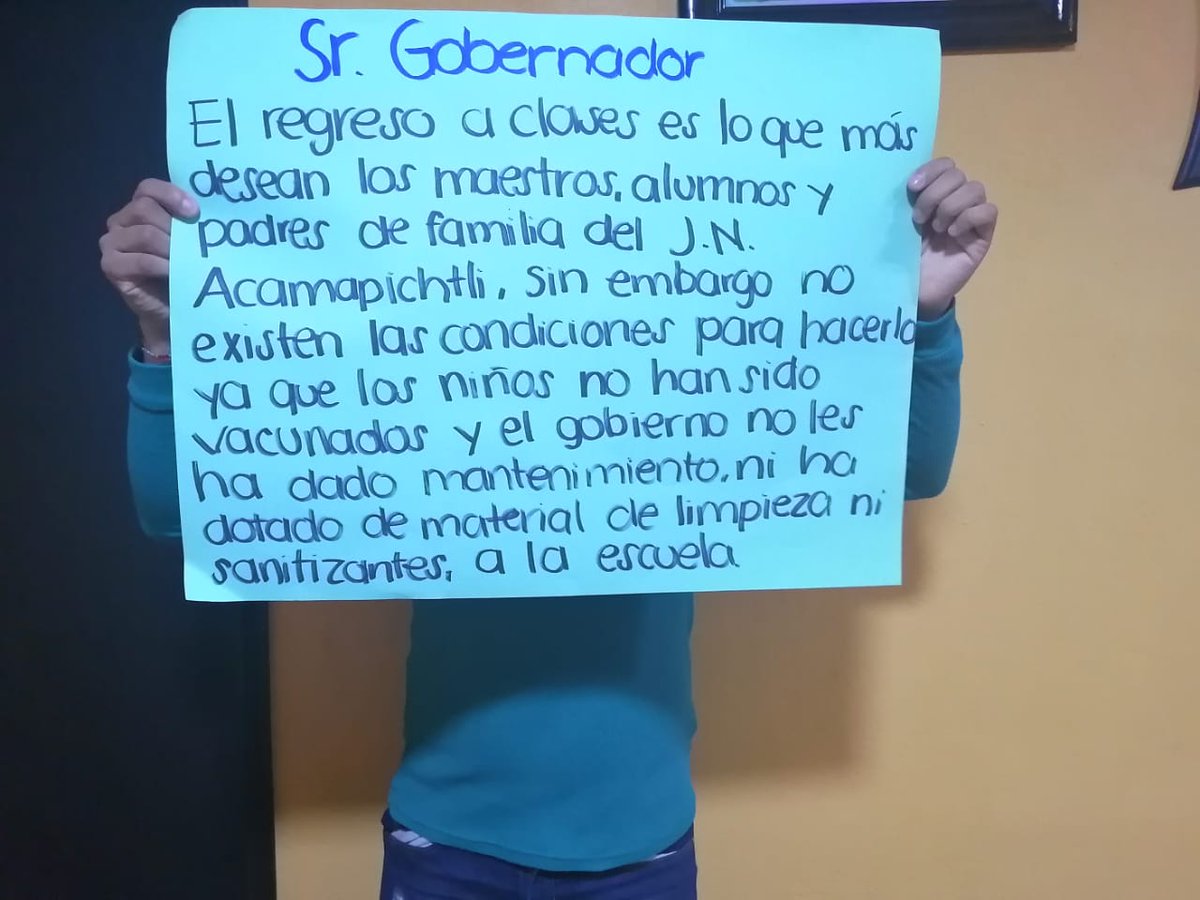 Sr. Gobernador
El regreso a clases es lo que más
desean los maestros, alumnos y
padres de familia del J.N.
Acamapichtli, sin embargo no
existen las condiciones para hacerlo
ya que los niños no han sido
vacunados y el gobierno no les
ha dado mantenimiento, ni ha
dotado de material de limpieza ni
sanitizantes, a la escuela.